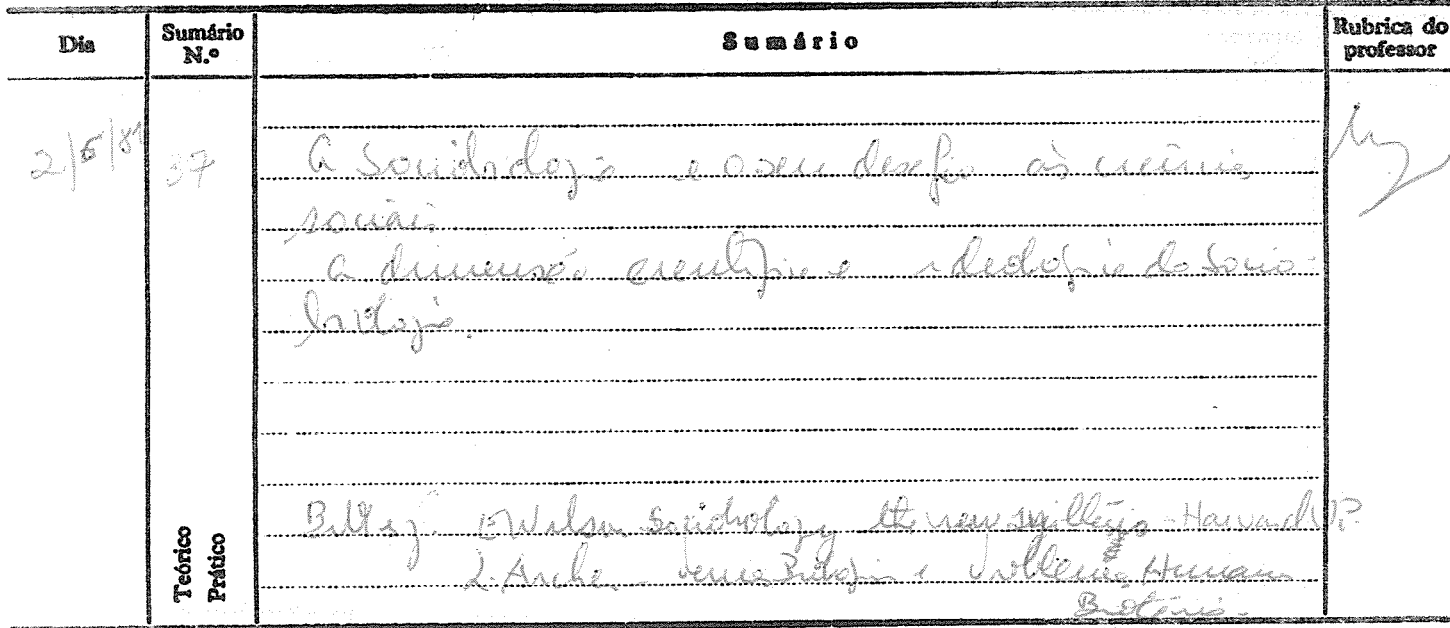 Dia
Sumário N.º
Sumário
Rubrica do professor
2/5/81
37
A Sociobiologia e o seu desafio às ciências
sociais.
A dimensão científica e ideológica da Socio-
biologia.
Teórico
Prático
E Wilson Sociobiology the new synthesis - Harvard UP
L. Archer - Biologia e Problemas Humanos
Brotéria -